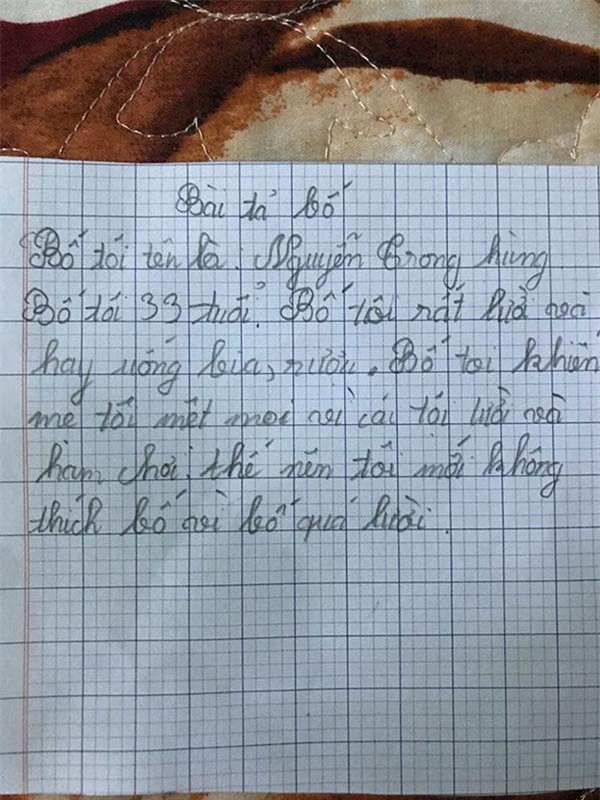 Bài tả bố
Bố tôi tên là: Nguyễn trong hùng
Bố tôi 33 tuổi. Bố tôi rất lười và
hay uống bia, rượu. Bố toi khiến
mẹ tôi mệt moi vì cái tôi lười và
ham chơi. thế nên tôi mới không
thích bố vì bố quá lười.